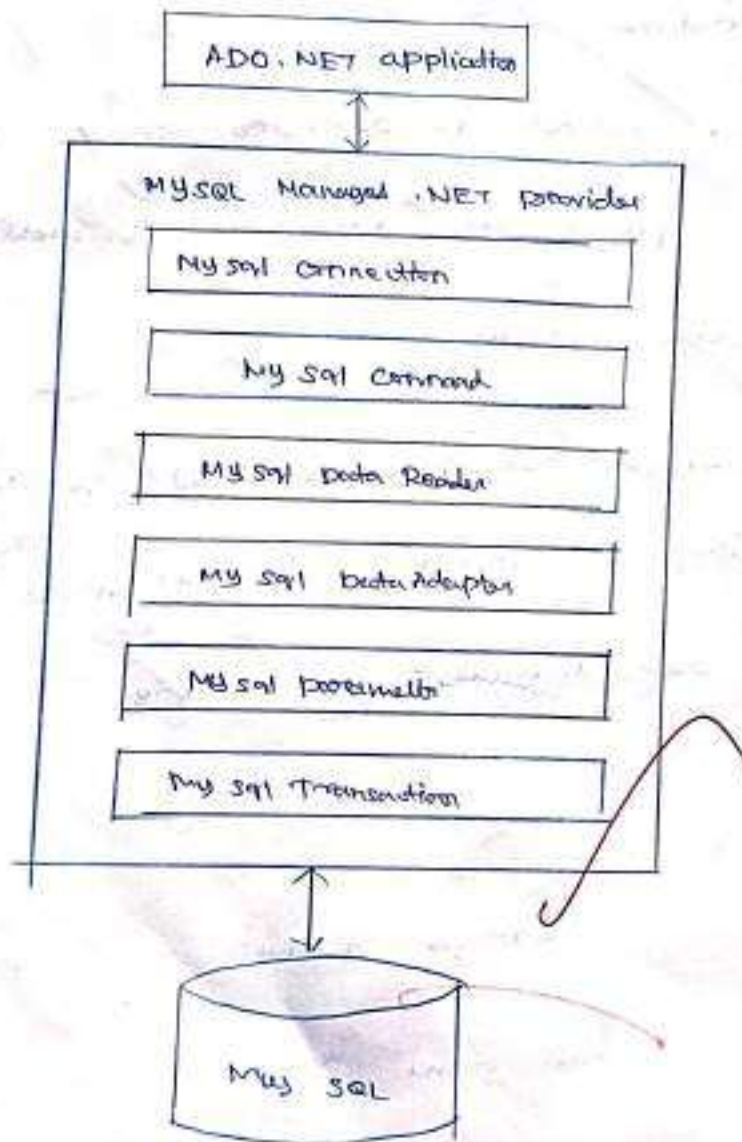 ADO.NET application
MYSQL Managed .NET provider
My sql connection
My sql command
My sql Data Reader
My sql Data Adapter
My sql parameter
My sql Transaction
My SQL